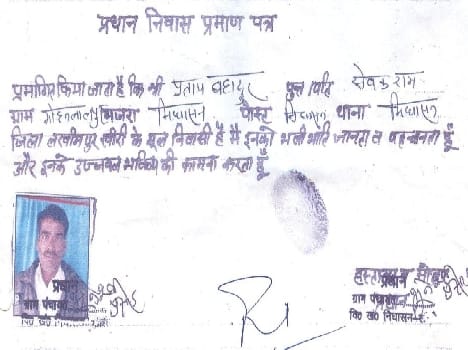 प्रधान निवास प्रमाण पत्र
प्रमाणित किया जाता है कि श्री प्रताप बहादुर पुत्र/पति सेवक राम
ग्राम मोहनलालपुर मजरा निघासन पोस्ट निघासन थाना निघासन
जिला लखीमपुर खीरी के मूल निवासी है मै इनको भली भाति जानता व पहचानता हूँ
और इनके उज्जवल भविष्य की कामना करता हूँ
प्रधान
ग्राम पंचायत
वि० ख०
प्रधान
ग्राम पंचायत
वि० ख० निघासन